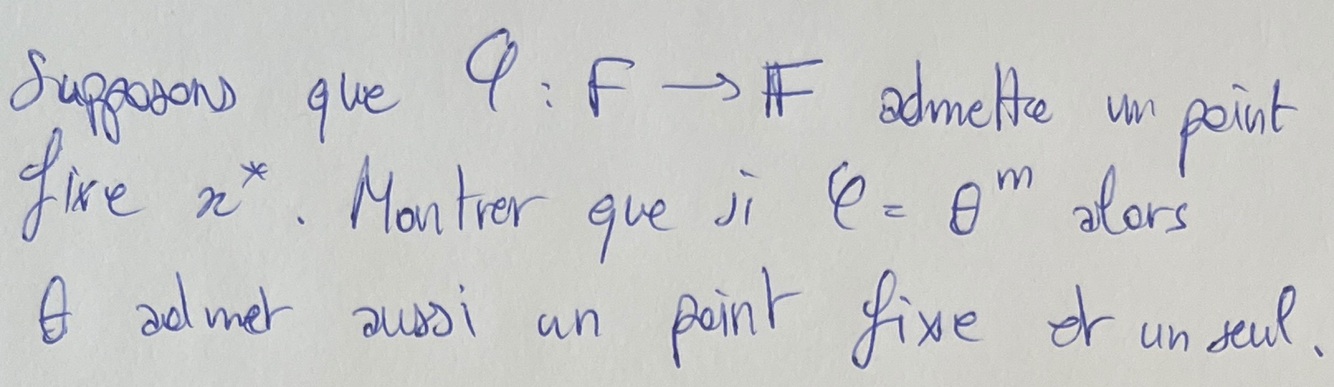 Supposons que φ : F → F admette un point
fixe x*. Montrer que si φ = θ^m alors
θ admet aussi un point fixe et un seul.